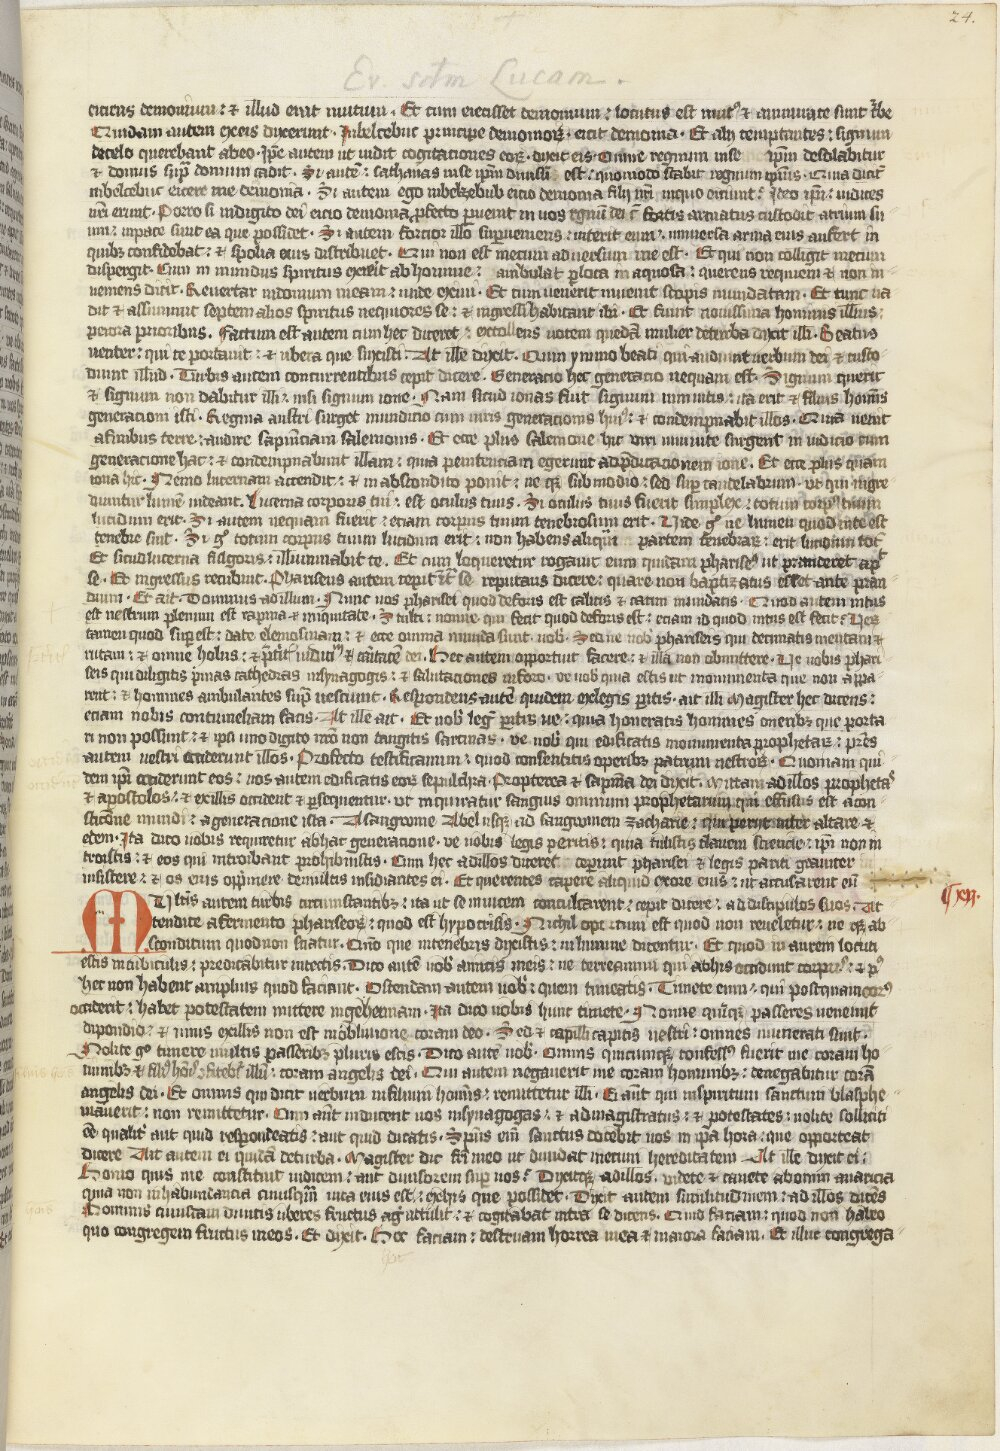 24.
Ev. sctm Lucam.
eiciens demonium: ⁊ illud erat mutum. Et cum eiecisset demonium: locutus est mutꝰ ⁊ ammirate sunt tᵉbe
Quidam autem ex eis dixerunt. In belcebut principe demonioꝝ. eicit demonia. Et alij temptantes: signum
de celo querebant ab eo. Ipẽ autem ut vidit cogitaciones eoꝝ. dixit eis. Omne regnum in se ipm̃ desolabitur
⁊ domus supᵃ domum cadit. Si autẽ: sathanas in se ipm̃ diuisus est: quomodo stabit regnum ipius. Quia dicit
in belcebut eicere me demonia. Si autem ego in belzebub eicio demonia filij ur̃i in quo eiciunt: ideo ipi: iudices
ur̃i erunt. Porro si in digito dei eicio demonia ꝓfecto ꝑuenit in uos regnũ dei Cũ fortis armatus custodit atrium su
um: in pace sunt ea que possidet. Si autem forcior illo superueniens: uicerit eum: uniuersa arma eius aufert in
quibꝫ confidebat: ⁊ spolia eius distribuet. Qui non est mecum aduersum me est. Et qui non colligit mecum
dispergit. Cum in mundus spiritus exierit ab homine: ambulat ꝑ loca in aquosa: querens requiem ⁊ non in
ueniens dicit. Reuertar in domum meam: unde exiui. Et cum uenerit inuenit scopis mundatam. Et tunc ua
dit ⁊ assummit septem alios spiritus nequiores se: ⁊ ingressi habitant ibi. Et fiunt nouissima hominis illius:
peiora prioribus. Factum est autem cum hec diceret: extollens uocem quedã mulier de turba dixit illi. Beatus
uenter: qui te portauit: ⁊ ubera que suxisti. At ille dixit. Quin ymmo beati qui audiunt uerbum dei ⁊ custo
diunt illud. Turbis autem concurrentibus cepit dicere. Generacio hec generacio nequam est. Signum querit
⁊ signum non dabitur illi: nisi signum ione. Nam sicud ionas fuit signum niniuitis: ita erit ⁊ filius hoĩnis
generacioni isti. Regina austri surget in iudicio cum uiris generacionis huiꝰ: ⁊ condempnabit illos. Quia uenit
a finibus terre: audire sapienciam salemonis. Et ecce plus salemone hic uiri niniuite surgent in iudicio cum
generacione hac: ⁊ condempnabunt illam: quia penitenciam egerunt ad pᵈicacionem ione. Et ecce plus quam
iona hic. Nemo lucernam accendit: ⁊ in abscondito ponit: neqꝫ sub modio: sed suꝑ candelabrum. ut qui ingre
diuntur lumẽ uideant. Lucerna corporis tui: est oculus tuus. Si oculus tuus fuerit simplex: totum corpꝰ tuum
lucidum erit. Si autem nequam fuerit: eciam corpus tuum tenebrosum erit. Uide gͦ ne lumen quod in te est
tenebre sint. Si gͦ totum corpus tuum lucidum erit: non habens aliquã partem tenebraꝝ: erit lucidum totũ
Et sicud lucerna fulgoris: illuminabit te. Et cum loqueretur rogauit eum quidam phariseꝰ ut pranderet apᵈ
se. Et ingressus recubuit. Phariseus autem cepit ĩtᵃ se reputans dicere: quare non baptizatus esset ante pran
dium. Et ait. Dominus ad illum. Nunc uos pharisei quod deforis est calicis ⁊ catini mundatis. Quod autem intus
est uestrum plenum est rapina ⁊ iniquitate. Stulti: nonne qui fecit quod deforis est: eciam id quod intus est fecit? Uerꝯ
tamen quod suꝑ est: date elemosinam: ⁊ ecce omnia munda sunt uob. Sed ue uob phariseis qui decimatis mentam ⁊
rutam: ⁊ omne holus: ⁊ ꝑteritis iudiciũ ⁊ caritatẽ dei. Hec autem opportuit facere: ⁊ illa non obmittere. Ue uobis phari
seis qui diligitis p̃mas cathedras in synagogis: ⁊ salutaciones in foro. ve uob quia estis ut monumenta que non appa
rent: ⁊ homines ambulantes supᵃ nesciunt. Respondens autẽ quidem ex legis ꝑitis. ait illi Magister hec dicens:
eciam nobis contumeliam facis. At ille ait. Et uobꝭ legꝭ ꝑitis ue: quia honeratis homines oneribꝫ que porta
ri non possunt: ⁊ ipi uno digito uro non tangitis sarcinas. ve uobꝭ qui edificatis monumenta prophetaꝝ: pr̃es
autem uestri occiderunt illos. Profecto testificamini: quod consentitis operibꝫ patrum uestroꝝ. Quoniam qui
dem ip̃i occiderunt eos: uos autem edificatis eoꝝ sepulchra. Propterea ⁊ sapiña dei dixit. Mittam ad illos prophetaˢ
⁊ apostolos: ⁊ ex illis occident ⁊ ꝑsequentur. ut inquiratur sanguis omnium prophetarum qui effusus est a con
sticõne mundi: a generacione ista. A sangwine Abel usqꝫ ad sangwinem zacharie: qui periit inter altare ⁊
edem. Ita dico uobis requiretur ab hac generacione. ve uobis legis peritis: quia tulistis clauem sciencie: ipi non in
troistis: ⁊ eos qui introibant prohibuistis. Cum hec ad illos diceret ceperunt pharisei ⁊ legis periti grauiter
insistere: ⁊ os eius opp̃mere de multis insidiantes ei. Et querentes capere aliquid ex ore eius: ut accusarent eũ
¶ xii.
Multis autem turbis circumstantibꝫ: ita ut se inuicem conculcarent: cepit dicere: ad discipulos suos. At
tendite a fermento phariseoꝝ: quod est hypocrisis. Nichil opertum est quod non reueletur: neqꝫ ab
sconditum quod non sciatur. Qm̃ que in tenebris dixistis: in lumine dicentur. Et quod in aurem locuti
estis in cubiculis: predicabitur in tectis. Dico autẽ uobꝭ amicis meis: ne terreamini qui ab his occidunt corpꝰ: ⁊ pꝰ
hec non habent amplius quod faciant. Ostendam autem uobꝭ: quem timeatis. Timete eum: qui postquam corꝰ
occiderit: habet potestatem mittere in gehennam. Ita dico uobis hunc timete. Nonne quinqꝫ passeres ueneunt
dipondio: ⁊ unus ex illis non est in obliuione coram deo. Sed ⁊ capilli capitis uestri: omnes numerati sunt.
Nolite gͦ timere multis passeribꝫ pluris estis. Dico autẽ uobꝭ. Omnis quicumqꝫ confessꝰ fuerit me coram ho
minibꝫ ⁊ filiꝰ hoĩs ꝯfitebit̃ illũ: coram angelis dei. Qui autem negauerit me coram hominibꝫ: denegabitur corã
angelis dei. Et omnis qui dicit uerbum in filium hoĩnis: remittetur illi. Ei aut̃ qui in spiritum sanctum blasphe
mauerit: non remittetur. Cum aut̃ inducent uos in synagogas: ⁊ ad magistratus: ⁊ potestates: nolite solliciti
eẽ qualitᵉ aut quid respondeatis: aut quid dicatis. Spũs enĩ sanctus docebit uos in ipa hora: que opporteat
dicere Ait autem ei quidã de turba. Magister dic fri meo ut diuidat mecum hereditatem At ille dixit ei:
Homo quis me constituit iudicem: aut diuisorem suꝑ uos? Dixitqꝫ ad illos. videte ⁊ cauete ab omni auaricia
quia non in habundancia cuiusquã uita eius est: ex his que possidet. Dixit autem similitudinem: ad illos dicẽs
Hominis cuiusdam diuitis uberes fructus ager attulit: ⁊ cogitabat intra se dicens. Quid faciam: quod non habeo
quo congregem fructus meos. Et dixit. Hoc faciam: destruam horrea mea ⁊ maiora faciam. Et illuc congrega